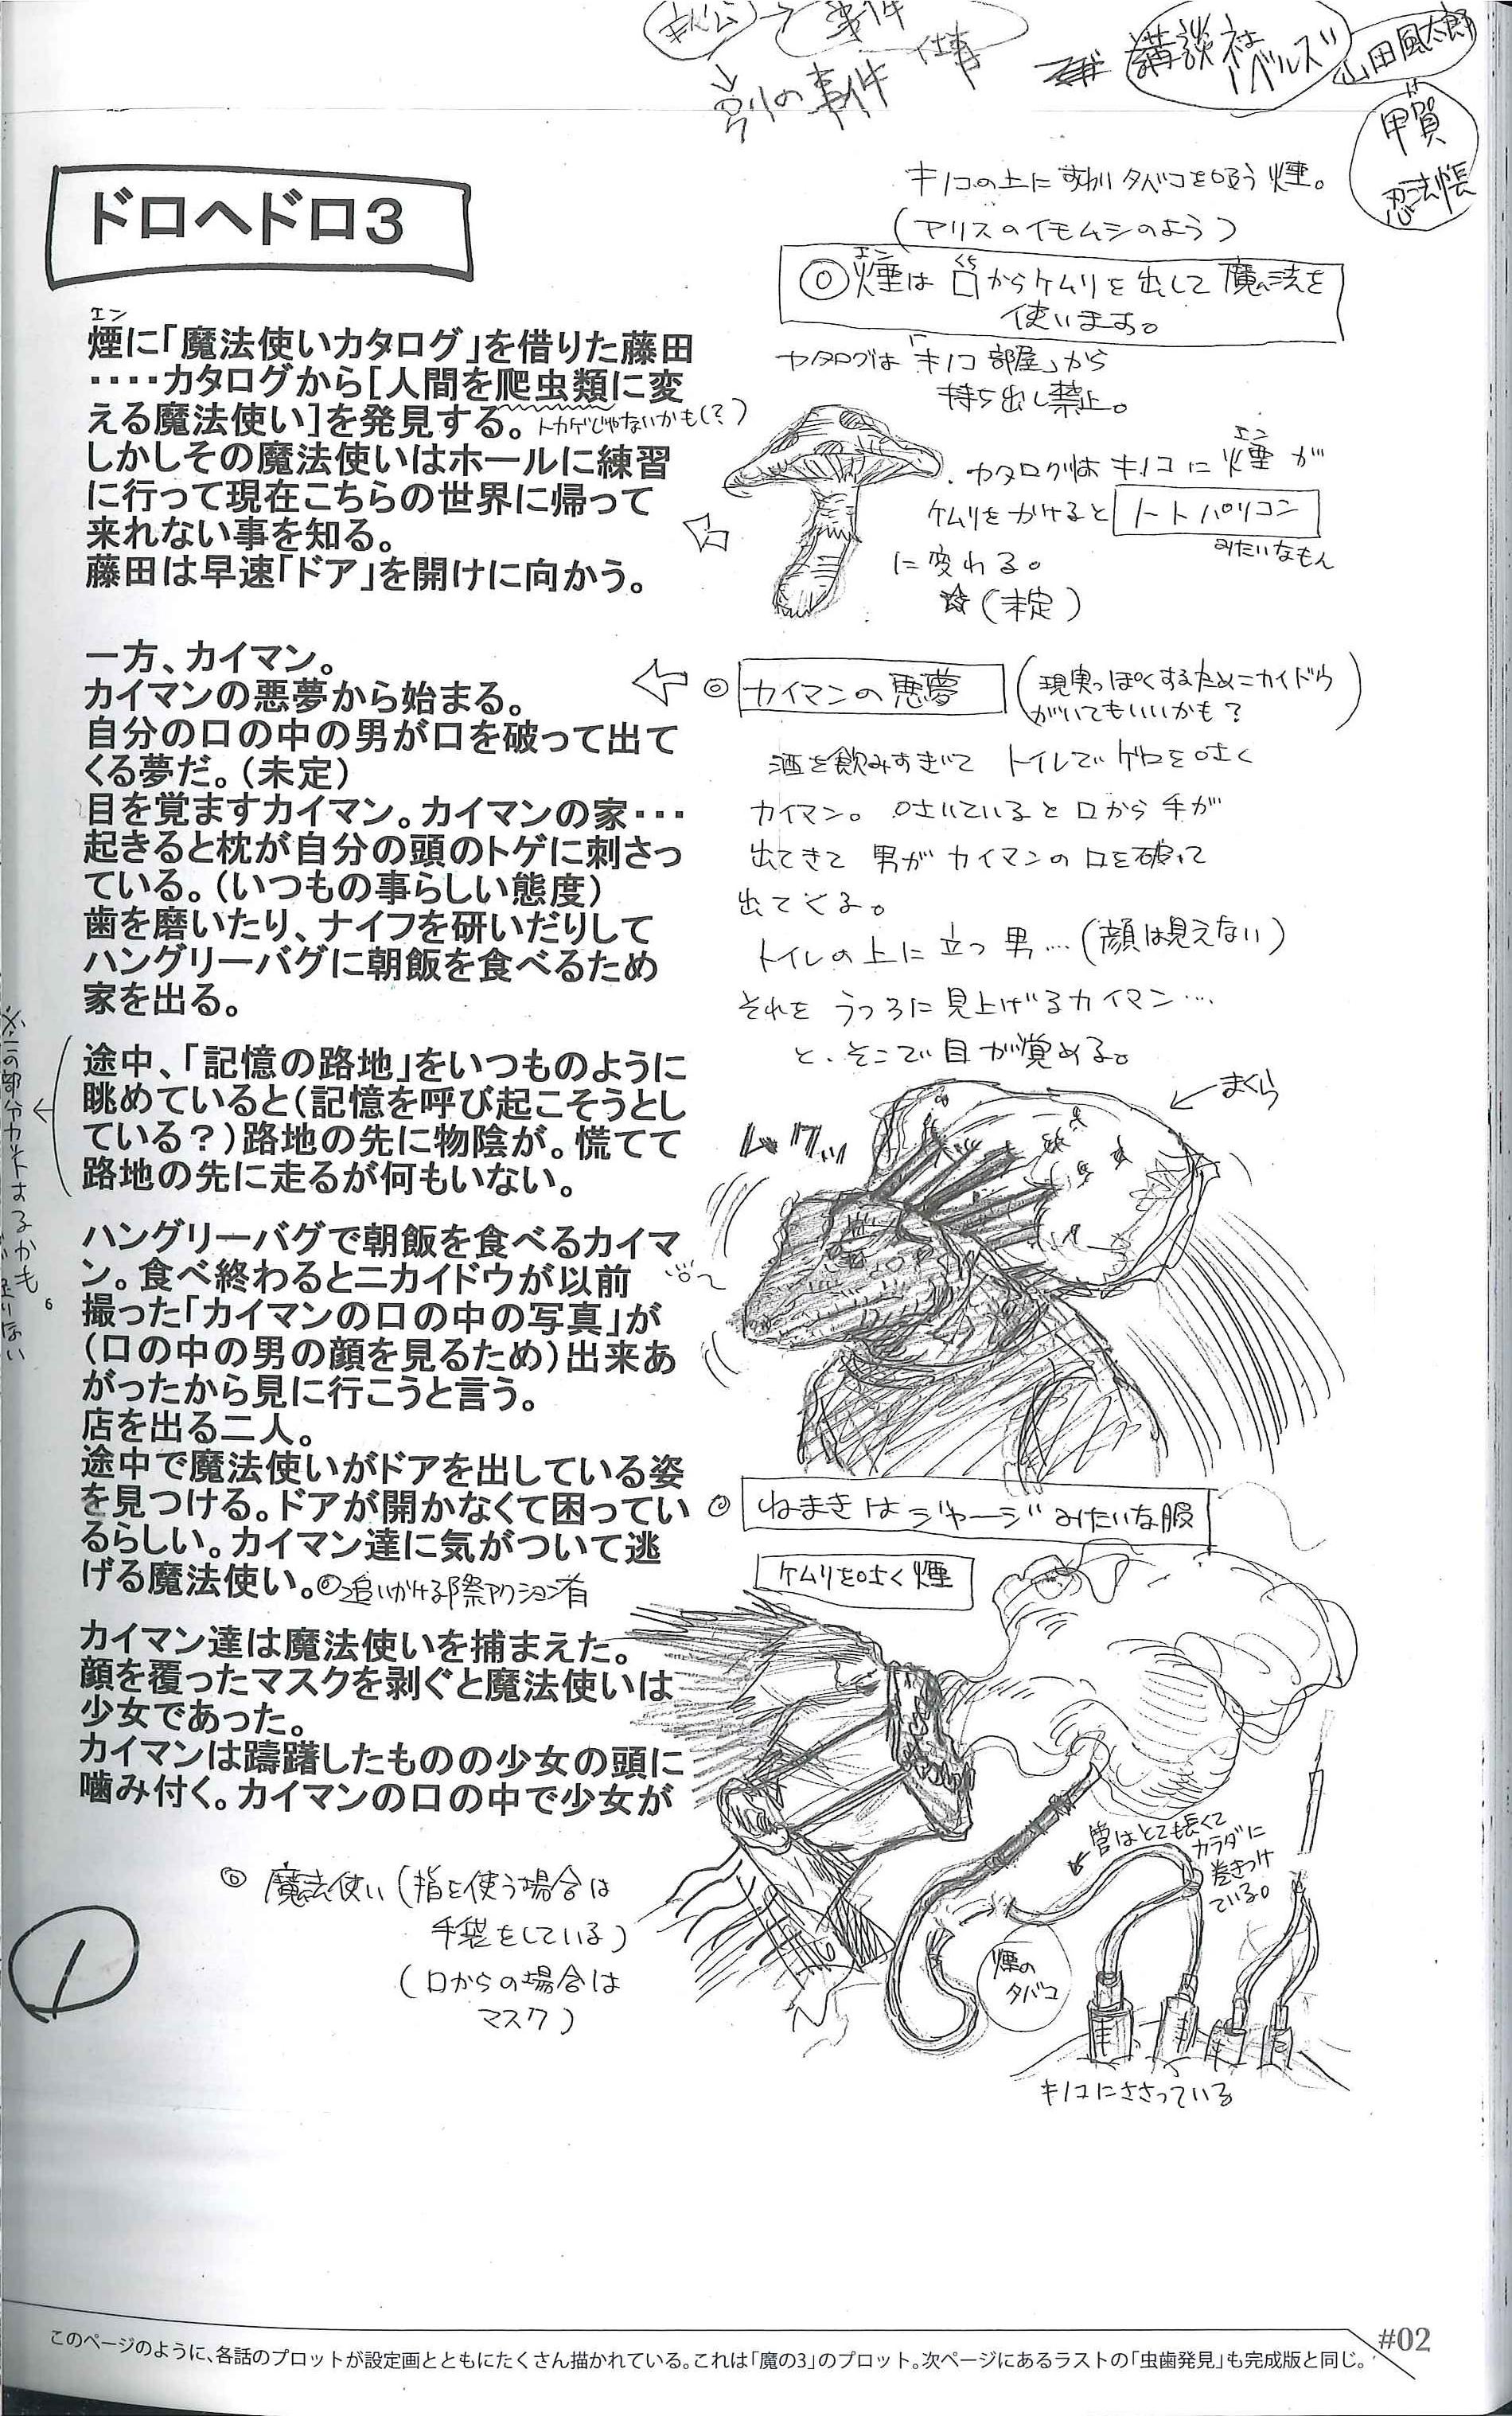 主人公→事件
仕事
↓
別の事件
講談社
ノベルズ
山田風太郎
甲賀
忍法帳
ドロヘドロ3
エン
煙に「魔法使いカタログ」を借りた藤田
‥‥カタログから[人間を爬虫類に変
える魔法使い]を発見する。
トカゲじゃないかも(?)
しかしその魔法使いはホールに練習
に行って現在こちらの世界に帰って
来れない事を知る。
藤田は早速「ドア」を開けに向かう。
一方、カイマン。
カイマンの悪夢から始まる。
自分の口の中の男が口を破って出て
くる夢だ。(未定)
目を覚ますカイマン。カイマンの家・・・
起きると枕が自分の頭のトゲに刺さっ
ている。(いつもの事らしい態度)
歯を磨いたり、ナイフを研いだりして
ハングリーバグに朝飯を食べるため
家を出る。
途中、「記憶の路地」をいつものように
眺めていると(記憶を呼び起こそうとし
ている?)路地の先に物陰が。慌てて
路地の先に走るが何もいない。
※この部分カットするかも。
ハングリーバグで朝飯を食べるカイマ
ン。食べ終わるとニカイドウが以前
撮った「カイマンの口の中の写真」が
(口の中の男の顔を見るため)出来あ
がったから見に行こうと言う。
店を出る二人。
途中で魔法使いがドアを出している姿
を見つける。ドアが開かなくて困ってい
るらしい。カイマン達に気がついて逃
げる魔法使い。
◎追いかける際アクション有
カイマン達は魔法使いを捕まえた。
顔を覆ったマスクを剥ぐと魔法使いは
少女であった。
カイマンは躊躇したものの少女の頭に
噛み付く。カイマンの口の中で少女が
◎ 魔法使い(指を使う場合は
手袋をしている)
(口からの場合は
マスク)
1
キノコの上にすわりタバコを吸う煙。
(アリスのイモムシのよう)
エン くち
◎煙は口からケムリを出して魔法を
使います。
カタログは「キノコ部屋」から
持ち出し禁止。
エン
・カタログはキノコに煙が
ケムリをかけるとノートパソコン
みたいなもん
に変わる。
☆(未定)
◎カイマンの悪夢
(現実っぽくするためニカイドウ
がいてもいいかも?)
酒を飲みすぎて トイレでゲロを吐く
カイマン。吐いていると口から手が
出てきて 男がカイマンの口を破って
出てくる。
トイレの上に立つ男…(顔は見えない)
それをうつろに見上げるカイマン…
と、そこで目が覚める。
まくら
ムクッ
◎ねまきはジャージみたいな服
ケムリを吐く煙
管はとても長くて
カラダに
巻きつけ
ている。
煙の
タバコ
キノコにささっている
このページのように、各話のプロットが設定画とともにたくさん描かれている。これは「魔の3」のプロット。次ページにあるラストの「虫歯発見」も完成版と同じ。
#02